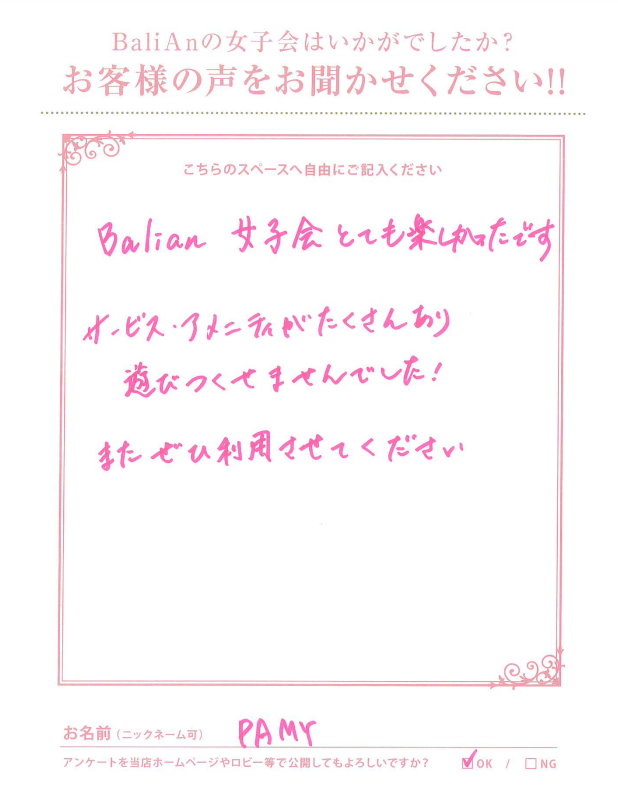 BaliAnの女子会はいかがでしたか？
お客様の声をお聞かせください!!
こちらのスペースへ自由にご記入ください
Balian 女子会 とても楽しかったです
サービス・アメニティがたくさんあり
遊びつくせませんでした！
またぜひ利用させてください
お名前（ニックネーム可） PAMY
アンケートを当店ホームページやロビー等で公開してもよろしいですか？ ☑OK / □NG